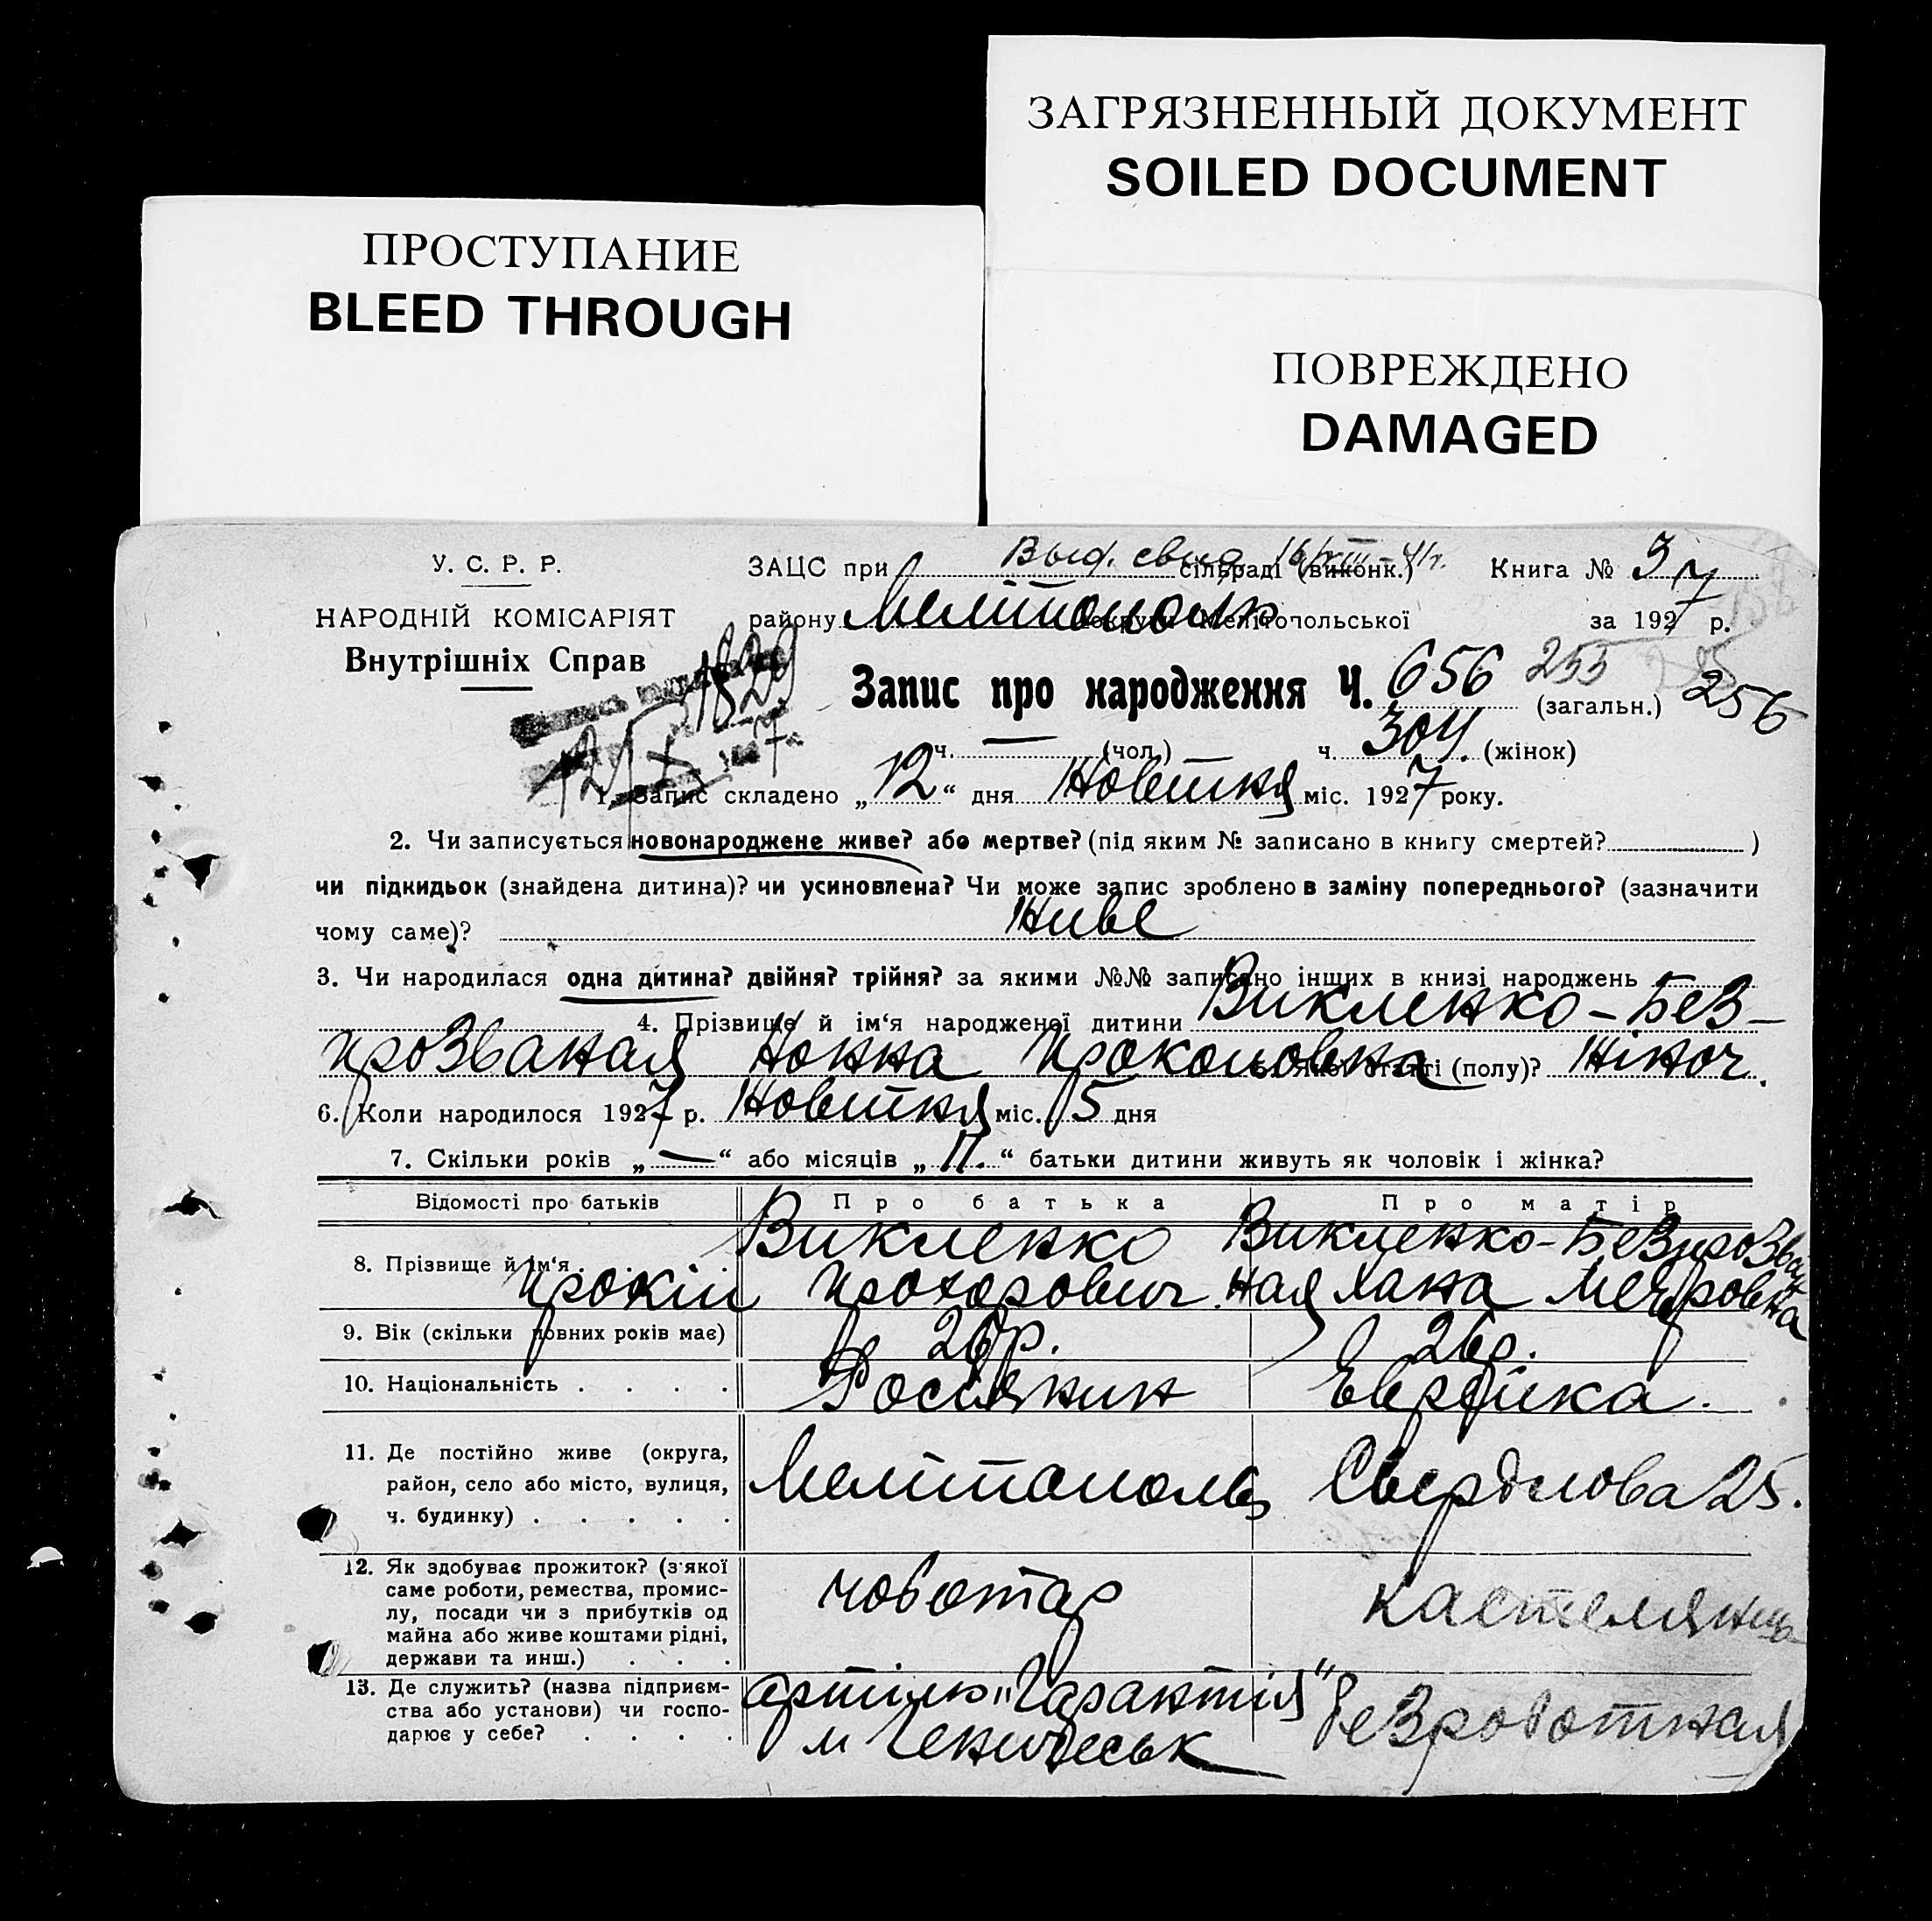 ЗАГРЯЗНЕННЫЙ ДОКУМЕНТ
SOILED DOCUMENT
ПРОСТУПАНИЕ
BLEED THROUGH
ПОВРЕЖДЕНО
DAMAGED
У. С. Р. Р.
НАРОДНІЙ КОМІСАРІЯТ
Внутрішніх Справ
ЗАЦС при сільраді (виконк.) Книга №
району Мелітополь округи Мелітопольської за 1927 р.
1829
Запис про народження Ч. 656 255 (загальн.) 256
ч. — (чол.) ч. 304 (жінок)
1. Запис складено „12“ дня Жовтня міс. 1927 року.
2. Чи записується новонароджене живе? або мертве? (під яким № записано в книгу смертей? )
чи підкидьок (знайдена дитина)? чи усиновлена? Чи може запис зроблено в заміну попереднього? (зазначити
чому саме)? Живе
3. Чи народилася одна дитина? двійня? трійня? за якими №№ записано інших в книзі народжень
4. Прізвище й ім‘я народженої дитини Викленко-Без-
прозваная Нонна Прокоповна 5. Якої статті (полу)? Жіноч.
6. Коли народилося 1927 р. Жовтня міс. 5 дня
7. Скільки років „—“ або місяців „11.“ батьки дитини живуть як чоловік і жінка?
Відомості про батьків Про батька Про матір
8. Прізвище й ім‘я . . . . Викленко Викленко-Безпрозван
Прохорович ная Хана
9. Вік (скільки повних років має) 26 р. 26 р.
10. Національність . . . . Росіянин Еврейка.
11. Де постійно живе (округа,
район, село або місто, вулиця,
ч. будинку) . . . . . Мелітополь Свердлова 25.
12. Як здобуває прожиток? (з якої
саме роботи, ремества, промис-
лу, посади чи з прибутків од
майна або живе коштами рідні,
держави та инш.) . . . чоботар кастелянша
13. Де служить? (назва підприєм-
ства або установи) чи госпо-
дарює у себе? . . . . артілю „Гарантія“ безработная
м Геническ